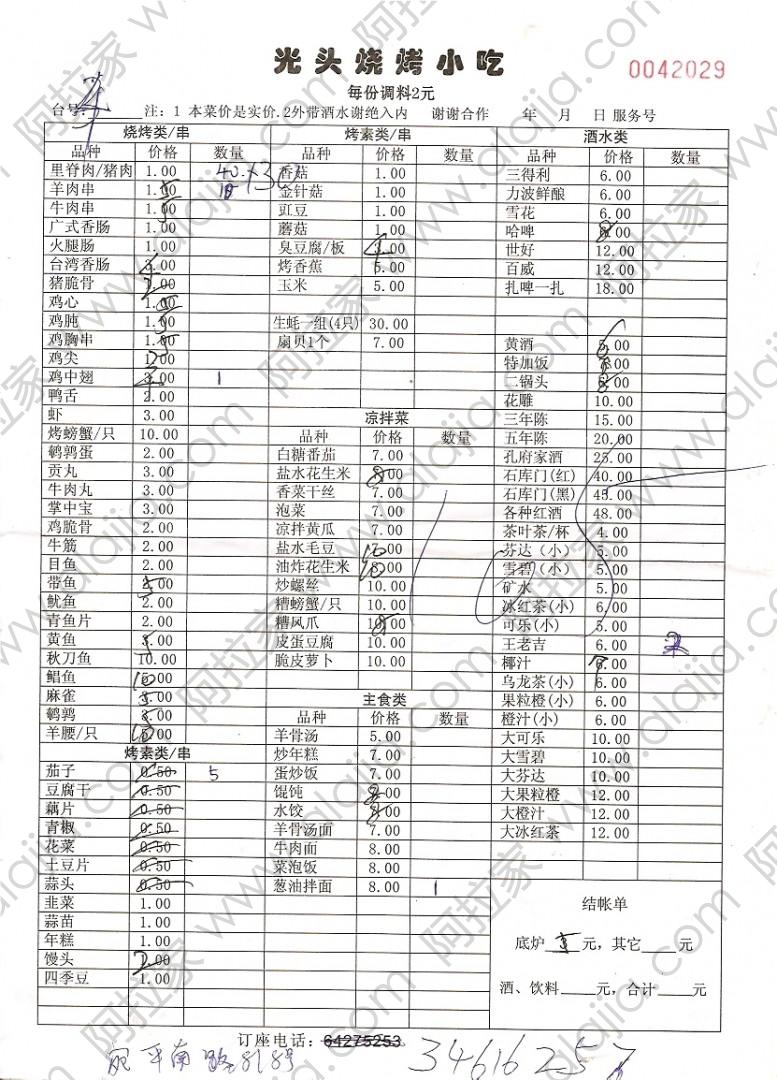 光头烧烤小吃
0042029
每份调料2元
台号: 注: 1 本菜价是实价. 2外带酒水谢绝入内 谢谢合作 年 月 日 服务号
烧烤类/串
品种 价格 数量
里脊肉/猪肉 1.00
羊肉串 1.
牛肉串 1.
广式香肠 1.00
火腿肠 1.00
台湾香肠
猪脆骨
鸡心 1.00
鸡肫 1.
鸡胸串 1.
鸡尖
鸡中翅 1
鸭舌 2.00
虾 3.00
烤螃蟹/只 10.00
鹌鹑蛋 2.00
贡丸 3.00
牛肉丸 3.00
掌中宝 3.00
鸡脆骨 2.00
牛筋 2.00
目鱼 2.00
带鱼
鱿鱼 2.00
青鱼片 2.00
黄鱼
秋刀鱼 10.00
鲳鱼
麻雀
鹌鹑
羊腰/只
烤素类/串
茄子 0.50 5
豆腐干 0.50
藕片 0.50
青椒 0.50
花菜 0.50
土豆片 0.50
蒜头 0.50
韭菜 1.00
蒜苗 1.00
年糕 1.00
馒头
四季豆 1.00
烤素类/串
品种 价格 数量
香菇 1.00
金针菇 1.00
豇豆 1.00
蘑菇 1.00
臭豆腐/板
烤香蕉 5.00
玉米 5.00
生蚝一组(4只) 30.00
扇贝1个 7.00
凉拌菜
品种 价格 数量
白糖番茄 7.00
盐水花生米 8
香菜干丝 7.00
泡菜 7.00
凉拌黄瓜 7.00
盐水毛豆 10
油炸花生米 10
炒螺丝 10.00
糟螃蟹/只 10.00
糟凤爪
皮蛋豆腐 10.00
脆皮萝卜 10.00
主食类
品种 价格 数量
羊骨汤 5.00
炒年糕 7.00
蛋炒饭 7.00
馄饨
水饺
羊骨汤面 7.00
牛肉面 8.00
菜泡饭 8.00
葱油拌面 8.00 1
酒水类
品种 价格 数量
三得利 6.00
力波鲜酿 6.00
雪花 6.00
哈啤
世好 12.00
百威 12.00
扎啤一扎 18.00
黄酒
特加饭
二锅头
花雕 10.00
三年陈 15.00
五年陈 20.00
孔府家酒 25.00
石库门(红) 40.00
石库门(黑) 45.00
各种红酒 48.00
茶叶茶/杯 4.00
芬达(小) 5.00
雪碧(小) 5.00
矿水 5.00
冰红茶(小) 6.00
可乐(小) 5.00
王老吉 6.00
椰汁
乌龙茶(小) 6.00
果粒橙(小) 6.00
橙汁(小) 6.00
大可乐 10.00
大雪碧 10.00
大芬达 10.00
大果粒橙 12.00
大橙汁 12.00
大冰红茶 12.00
结帐单
底炉 元, 其它 元
酒、饮料 元, 合计 元
订座电话: 64275253
平南路818号 34616257
阿拉家 www.alajia.com